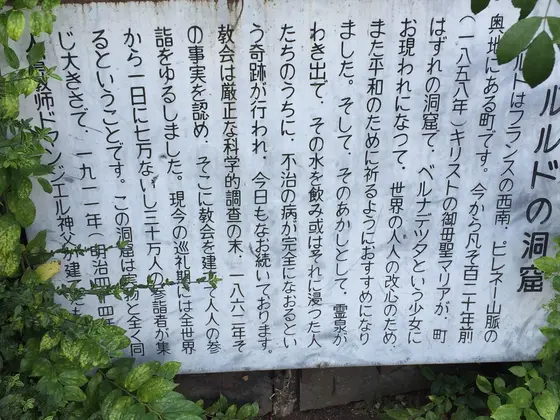 ルルドの洞窟
ルドはフランスの西南、ピレネー山脈の
奥地にある町です。今から凡そ百二十年前
(一八五八年)キリストの御母聖マリアが、町
はずれの洞窟で、ベルナデッタという少女に
お現われになって、世界の人人の改心のため、
また平和のために祈るようにおすすめになり
ました。そして、そのあかしとして、霊泉が
わき出て、その水を飲み或はそれに浸つた人
たちのうちに、不治の病が完全になおるとい
う奇跡が行われ、今日もなお続いております。
教会は厳正な科学的調査の末、一八六二年そ
の事実を認め、そこに教会を建て人人の参
詣をゆるしました。現今の巡礼期には全世界
から一日に七万ないし三十万人の参詣者が集
るということです。この洞窟は実物と全く同
じ大きさで、一九一一年(明治四十四年
宣教師ドマンジエル神父が建てたも